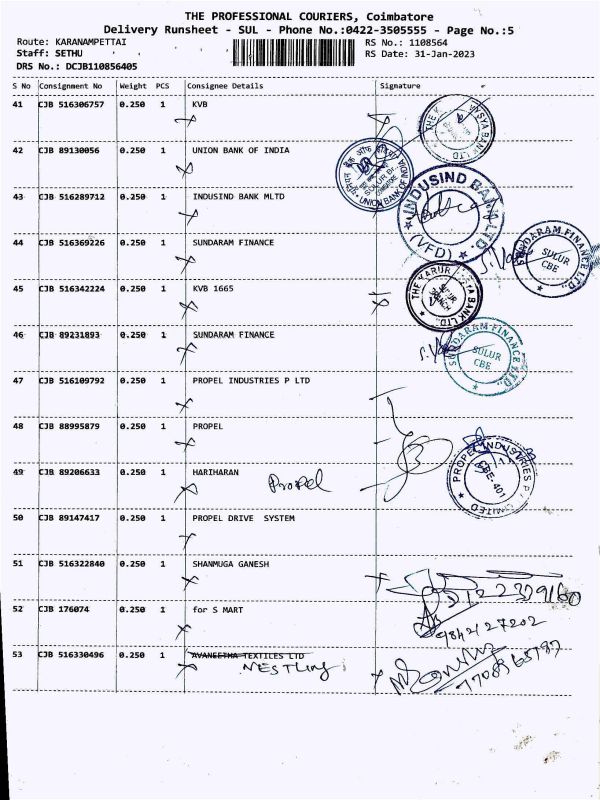 THE PROFESSIONAL COURIERS, Coimbatore
Delivery Runsheet - SUL - Phone No.:0422-3505555 - Page No.:5
Route: KARANAMPETTAI RS No.: 1108564
Staff: SETHU RS Date: 31-Jan-2023
DRS No.: DCJB110856405
S No Consignment No Weight PCS Consignee Details Signature
41 CJB 516306757 0.250 1 KVB
42 CJB 89130056 0.250 1 UNION BANK OF INDIA
SULUR Br.
UNION BANK OF INDIA
43 CJB 516289712 0.250 1 INDUSIND BANK MLTD
INDUSIND BANK LTD.
(VFD)
44 CJB 516369226 0.250 1 SUNDARAM FINANCE
SUNDARAM FINANCE LTD.,
SULUR
CBE
45 CJB 516342224 0.250 1 KVB 1665
THE KARUR VYSYA BANK LTD.,
46 CJB 89231893 0.250 1 SUNDARAM FINANCE
SUNDARAM FINANCE LTD.,
SULUR
CBE
47 CJB 516109792 0.250 1 PROPEL INDUSTRIES P LTD
48 CJB 88995879 0.250 1 PROPEL
PROPEL INDUSTRIES P LIMITED
CBE-401
49 CJB 89206633 0.250 1 HARIHARAN Propel
50 CJB 89147417 0.250 1 PROPEL DRIVE SYSTEM
51 CJB 516322840 0.250 1 SHANMUGA GANESH
52 CJB 176074 0.250 1 for S MART
9842127202
53 CJB 516330496 0.250 1 AVANEETHA TEXTILES LTD